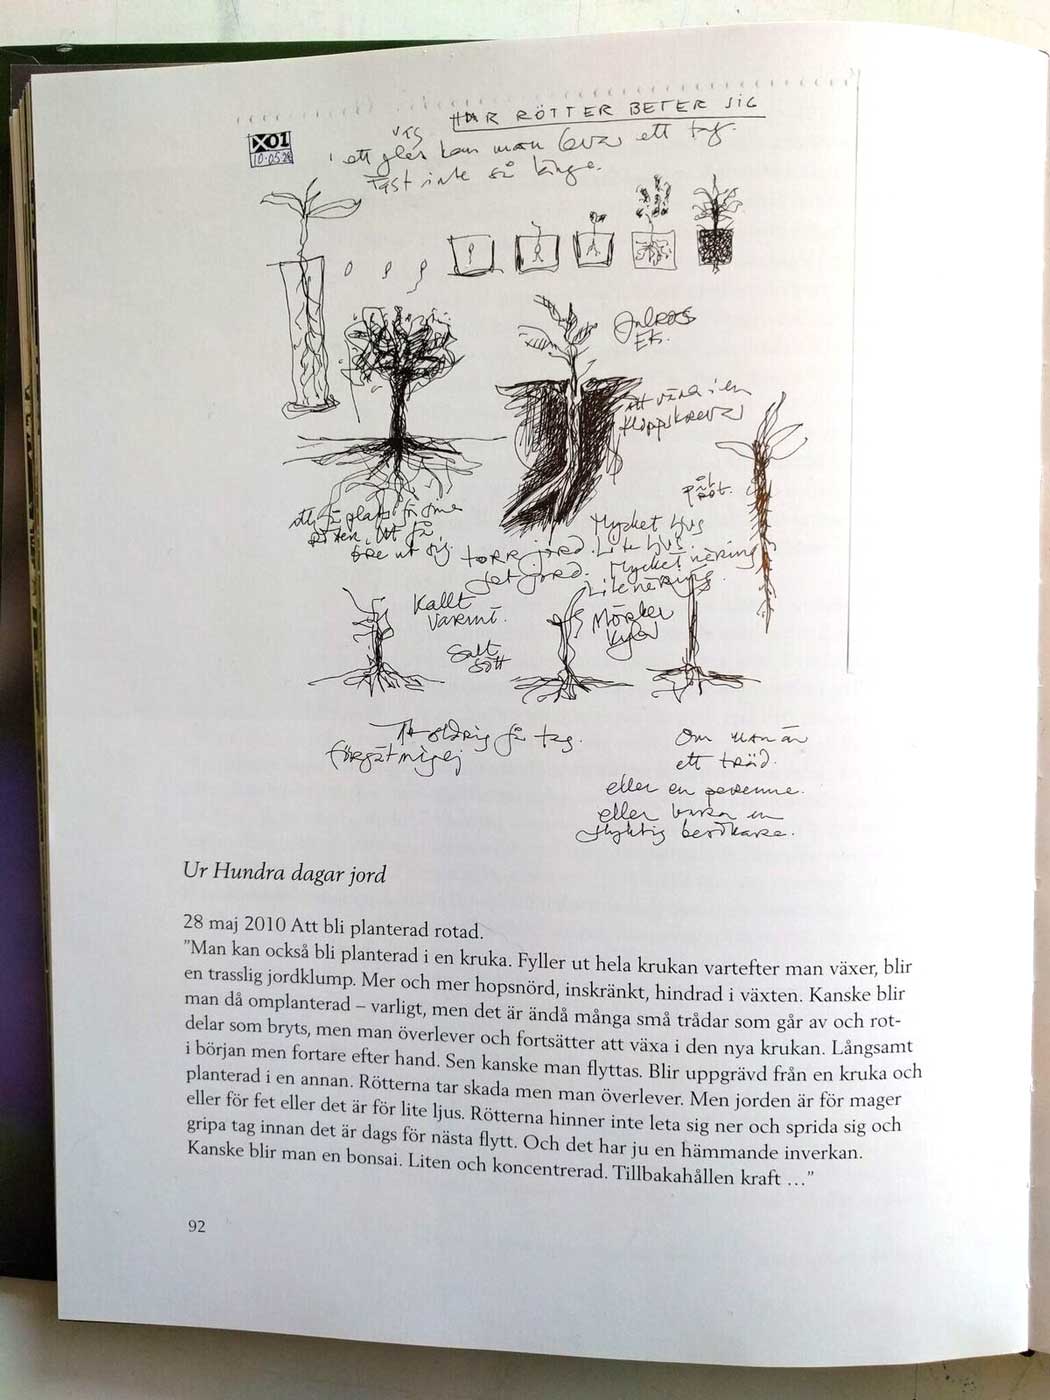 HUR RÖTTER BETER SIG
X01
10.05.28
i ett glas kan man leva ett tag.
Fast inte så länge.
Julros
Ek.
att växa i en
klippskreva
pålrot.
att få plats för sina
rötter. Att få
bre ut sig.
torr jord.
fet jord.
Mycket ljus
Lite ljus
Mycket näring
Lite näring.
Kallt
varmt.
Salt
Sött
Mörker
Kyla
Att aldrig få tag.
förgätmigej
Om man är
ett träd.
eller en perenne.
eller bara en
flyktig besökare.
Ur Hundra dagar jord
28 maj 2010 Att bli planterad rotad.
”Man kan också bli planterad i en kruka. Fyller ut hela krukan vartefter man växer, blir
en trasslig jordklump. Mer och mer hopsnörd, inskränkt, hindrad i växten. Kanske blir
man då omplanterad – varligt, men det är ändå många små trådar som går av och rot-
delar som bryts, men man överlever och fortsätter att växa i den nya krukan. Långsamt
i början men fortare efter hand. Sen kanske man flyttas. Blir uppgrävd från en kruka och
planterad i en annan. Rötterna tar skada men man överlever. Men jorden är för mager
eller för fet eller det är för lite ljus. Rötterna hinner inte leta sig ner och sprida sig och
gripa tag innan det är dags för nästa flytt. Och det har ju en hämmande inverkan.
Kanske blir man en bonsai. Liten och koncentrerad. Tillbakahållen kraft …”
92